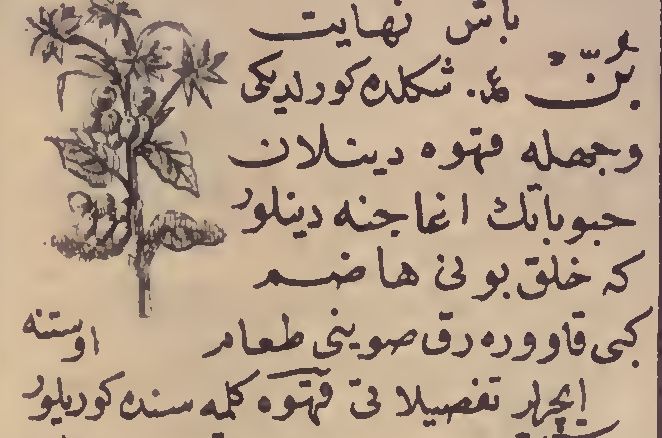 باش نهایت
بُنّ ع. شكلده كورلدیكی
وجهله قهوه دینلان
حبوباتك اغاجنه دینلور
كه خلق بونی هاضم
كبی قاووره‌رق صوینی طعام اوستنه
ایچرلر تفصیلاتی قهوه كلمه سنده كوریلور